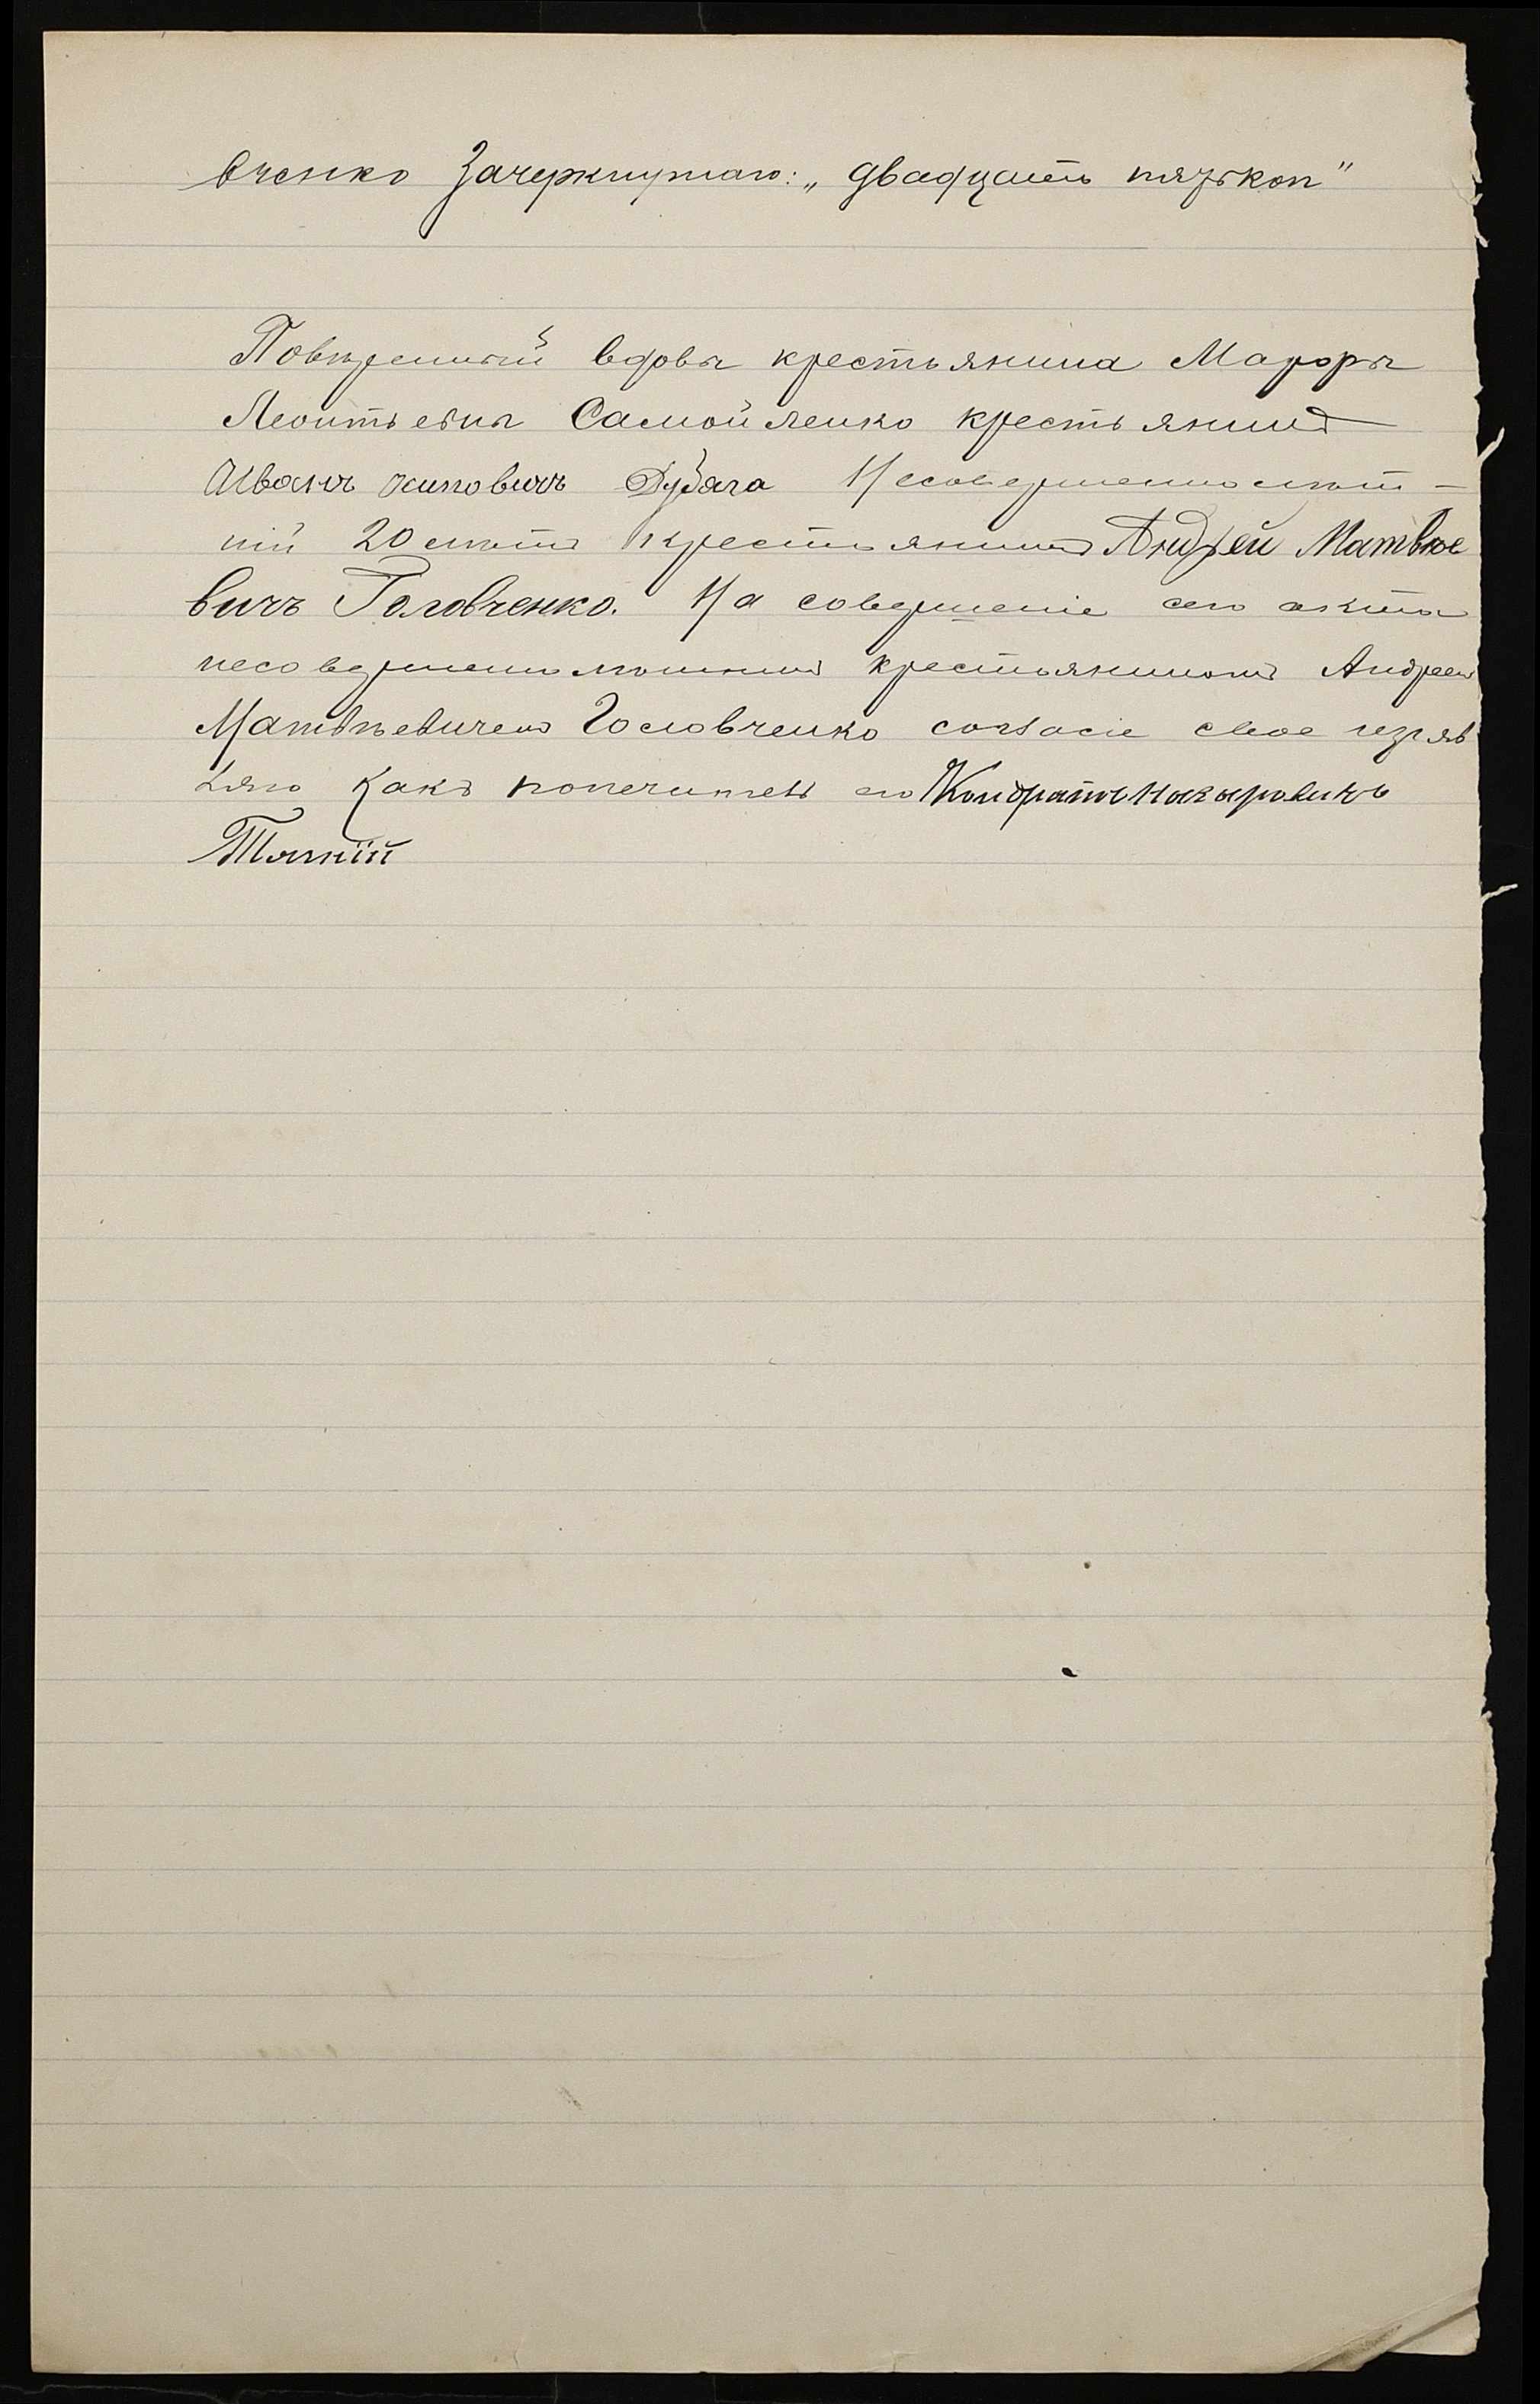 вченко Зачеркнутаго: „двадцать пять коп"
Повѣренный вдовы крестьянина Мавры
Леонтьевны Самойленко крестьянинъ
Иванъ осиповичъ Дубяга Несовершеннолѣт-
ній 20 лѣтъ крестьянинъ Андрей Матвѣе
вичъ Головченко. На совершеніе сего акта
несовершеннолѣтнимъ крестьяниномъ Андреемъ
Матвѣевичемъ Головченко согласіе свое изъяв
ляю какъ попечитель его Кондратъ